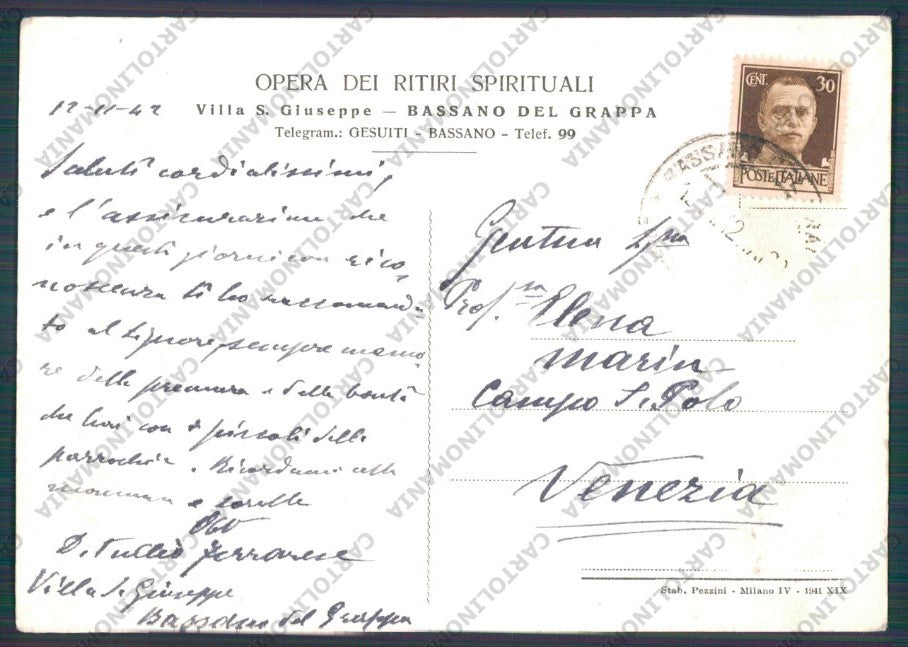 OPERA DEI RITIRI SPIRITUALI
Villa S. Giuseppe — BASSANO DEL GRAPPA
Telegram.: GESUITI - BASSANO - Telef. 99
12-11-42
Saluti cordialissimi,
e l'assicurazione che
in questi giorni con rico-
noscenza ti ho raccomanda-
to al Signore, sempre memo-
re della premura e della bontà
che hai con i piccoli della
parrochia. Ricordami alla
mamma e sorella
Obb
D. Tullio Ferrarese
Villa S. Giuseppe
Bassano del Grappa
CENT. 30
POSTE ITALIANE
BASSANO
Gentma
Prof.ssa Elena
Marin
Campo S. Polo
Venezia
Stab. Pezzini - Milano IV - 1941 XIX
CARTOLINOMANIA